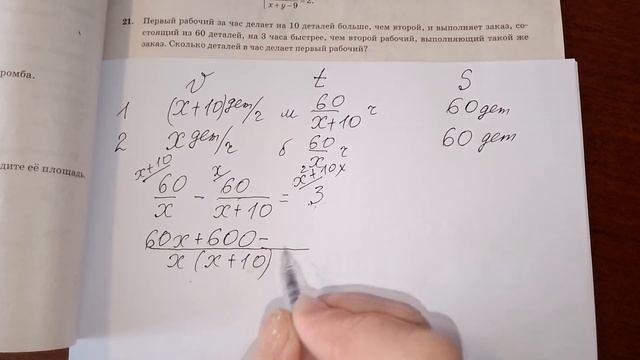 x+y-9
=2.
21. Первый рабочий за час делает на 10 деталей больше, чем второй, и выполняет заказ, со-
стоящий из 60 деталей, на 3 часа быстрее, чем второй рабочий, выполняющий такой же
заказ. Сколько деталей в час делает первый рабочий?
ромба.
дите её площадь,
v t S
1 (x+10) дет/ч м 60/(x+10) ч 60 дет
2 x дет/ч б 60/x ч 60 дет
x+10 x x²+10x
60/x - 60/(x+10) = 3
60x+600-
x(x+10)